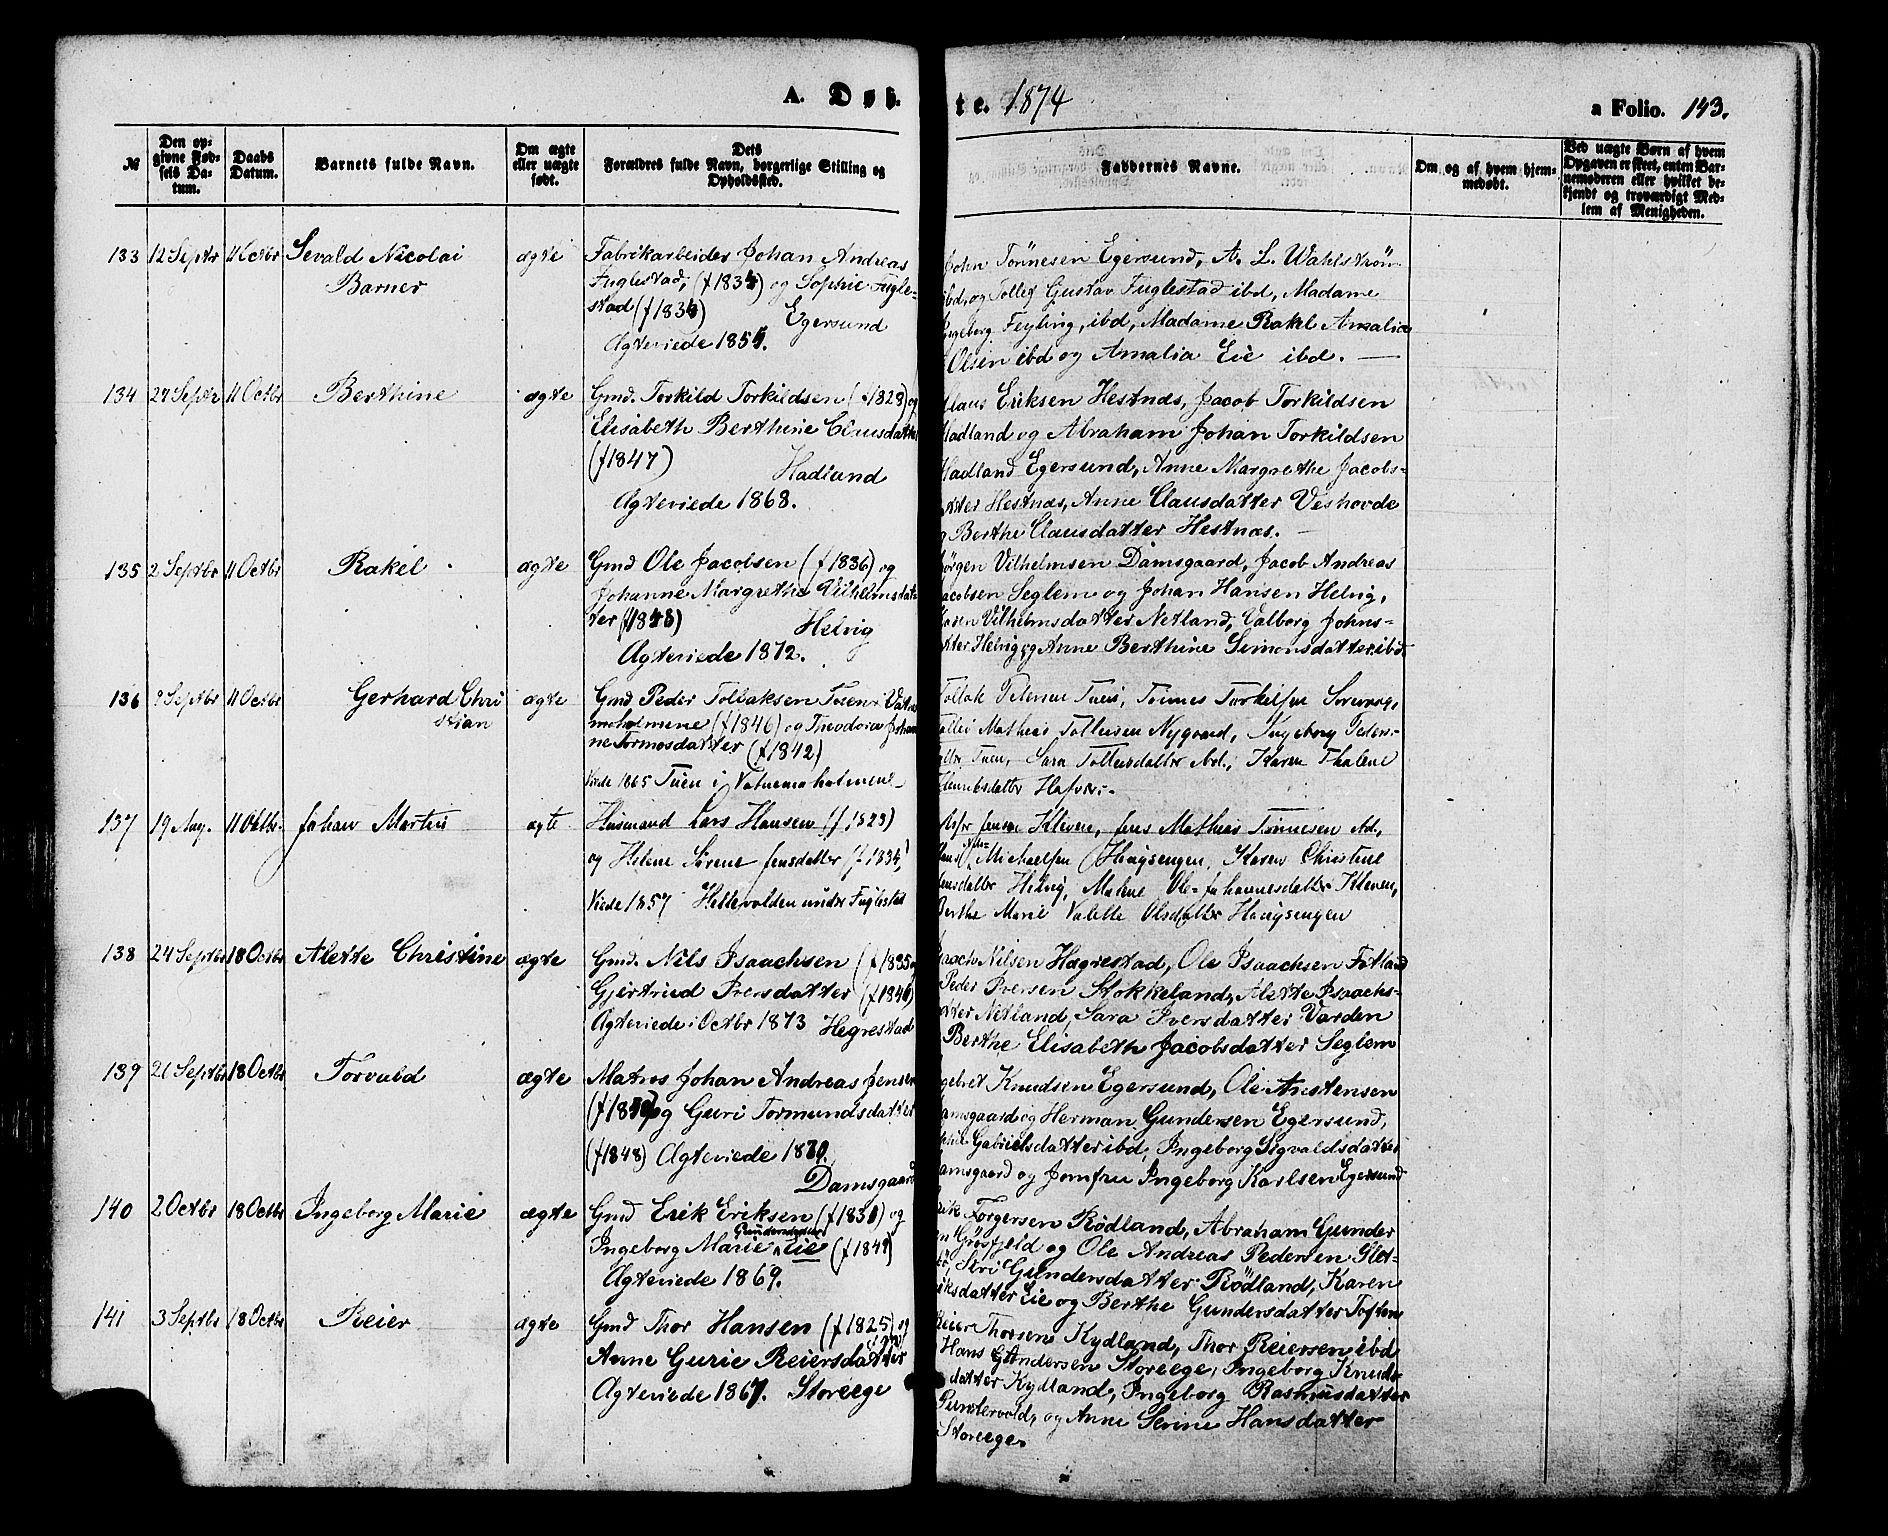 A. Døb-
te. 1874
a Folio. 143.
№
Den op-
givne Fød-
sels Da-
tum.
Daabs
Datum.
Barnets fulde Navn.
Om ægte
eller uægte
født.
Dets
Forældres fulde Navn, borgerlige Stilling og
Opholdssted.
Faddernes Navne.
Om og af hvem hjem-
medøbt.
Ved uægte Børn af hvem
Opgaven er skeet, enten Bar-
nemoderen eller hvilket be-
kjendt og troværdigt Med-
lem af Menigheden.
133 12 Septbr 11 Octbr Sevald Nicolai
Barner
ægte
Fabrikarbeider Johan Andreas
Fuglestad, (f 1834) og Sophie Fugle-
stad (f 1834)
Egersund
Ægteviede 1854.
John Tönnesen Egersund, A. L. Wahlström
ibd, og Tollef Gustav Fuglestad ibd, Madame
Ingeborg Feyling, ibd, Madame Rakel Amalia
Olsen ibd og Amalia Eie ibd.
134 27 Septbr 11 Octbr Berthine ægte
Gmd. Torkild Torkildsen (f 1828) og
Elisabeth Berthine Clausdatter
(f 1847)
Hadland
Ægteviede 1868.
Claus Eriksen Hestnæs, Jacob Torkildsen
Hadland og Abraham Johan Torkildsen
Hadland Egersund, Anne Margrethe Jacobs-
datter Hestnæs, Anne Clausdatter Veshovde
og Berthe Clausdatter Hestnæs.
135 2 Septbr 11 Octbr Rakel ægte
Gmd Ole Jacobsen (f 1836) og
Johanne Margrethe Vilhelmsdat-
ter (f 1848)
Helvig
Ægteviede 1872.
Jörgen Vilhelmsen Damsgaard, Jacob Andreas
Jacobsen Seglem og Johan Hansen Helvig,
Karen Vilhelmsdatter Netland, Valborg Johns-
datter Helvig og Anne Berthine Simonsdatter ibd.
136 Septbr 11 Octbr Gerhard Chri
stian
ægte
Gmd Peder Tollaksen Tuen i
(f 1846) og Theodora Johan
ne Tormosdatter (f 1842)
Viede 1865 Tuen i Vatnemoholmene
Tollak Petersen Tuen, Tönnes Torkilsen
Mathias Tollefsen Nygaard, Ingeborg Peders-
datter Tuen, Sara Tollefsdatter ibd., Karen Thalene
Henriksdatter
137 19 Aug. 11 Octbr. Johan Martin ægte
Husmand Lars Hansen (f 1823)
og Helene Sörene Jensdatter (f 1834)
Viede 1857 Hellevolden under Fuglestad
Jensen Kleven, Jens Mathias Tönnesen ibd.,
Hans Michaelsen Haugsengen, Karen Christine
Jensdatter Helvig, Malene Ole-Johannesdatter Kleven,
Berthe Marie Valette Olsdatter Haugsengen
138 24 Septbr 18 Octbr Alette Christine ægte
Gmd. Nils Isaachsen (f 1835 og
Gjertrud Iversdatter (f 1840)
Ægteviede i Octbr 1873 Hegrestad
Isaach Nilsen Hægrestad, Ole Isaachsen Fotland
Peder Iversen Stokkeland, Alette Isaachs-
datter Netland, Sara Iversdatter Varden
Berthe Elisabeth Jacobsdatter Seglem
139 21 Septbr 18 Octbr Torvald ægte
Matros Johan Andreas Jensen
og Guri Tormundsdatter
(f 1848) Ægteviede 1870.
Damsgaard
Knudsen Egersund, Ole Aristensen
Damsgaard og Herman Gundersen Egersund,
Gabrielsdatter ibd, Ingeborg Sigvaldsdatter
Damsgaard og Jomfru Ingeborg Karlsen Egersund
140 2 Octbr 18 Octbr Ingeborg Marie ægte
Gmd Erik Eriksen (f 1830) og
Gundersdatter
Ingeborg Marie Eie (f 1849)
Ægteviede 1869.
Erik Torgersen Rödland, Abraham Gunder
sen Grösfjeld og Ole Andreas Pedersen Slet-
Siri Gundersdatter Rödland, Karen
Eriksdatter Eie og Berthe Gundersdatter
141 3 Septbr 18 Octbr Reier ægte
Gmd Thor Hansen (f 1825) og
Anne Gurie Reiersdatter
Ægteviede 1867. Storeege
Reier Thorsen Kydland, Thor Reiersen ibd
Hans Gundersen Storeege, Ingeborg Knuds-
datter Kydland, Ingeborg Rasmusdatter
Puntervold, og Anne Serine Hansdatter
Storeege.